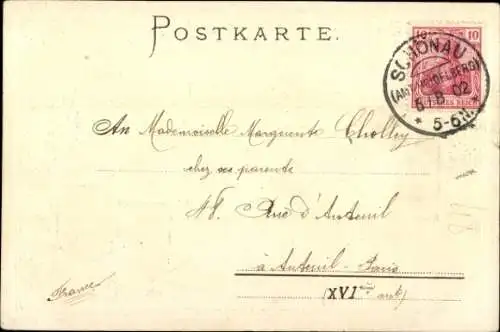 POSTKARTE.
10 10
SCHÖNAU
(AMT HEIDELBERG)
02
5-6N.
DEUTSCHES REICH
An Mademoiselle Marguerite Cholley
chez ses parents
48, Rue d'Auteuil
à Auteuil - Paris
(XVI
France